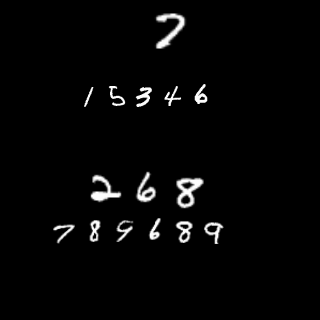 7
15346
268
789689